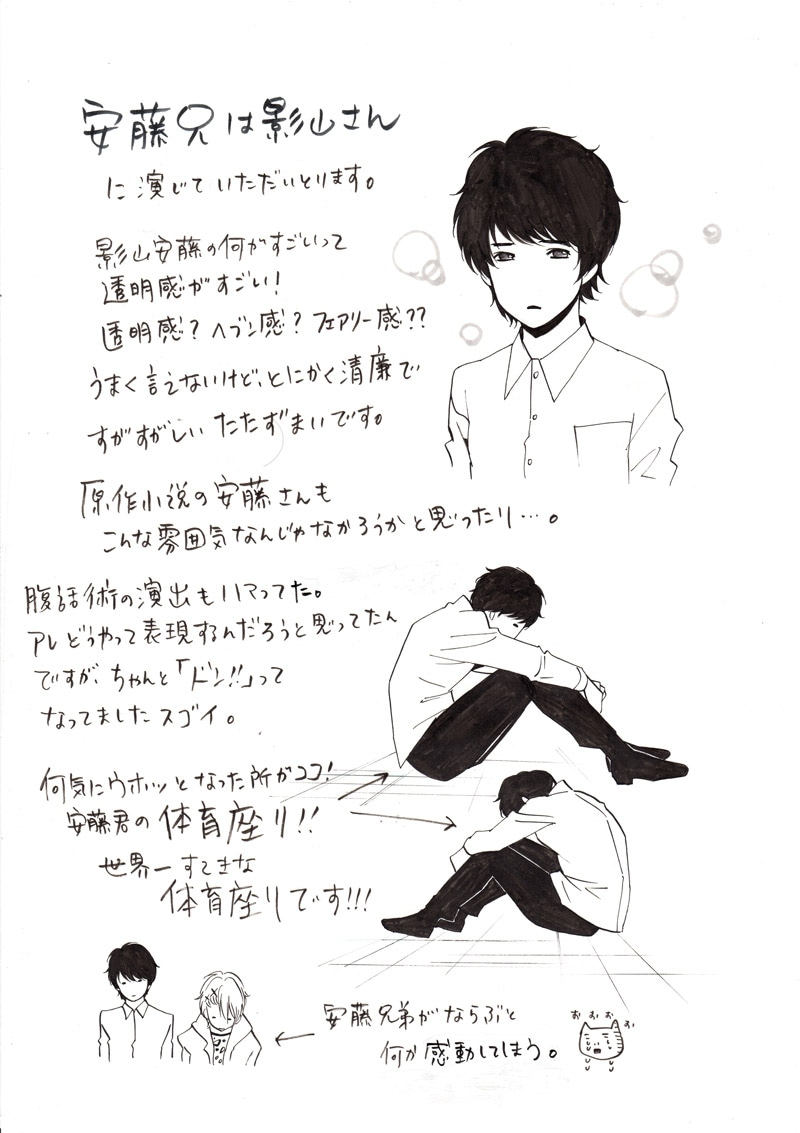 安藤兄は影山さん
に演じていただいとります。
影山安藤の何がすごいって
透明感がすごい!
透明感?ヘブン感?フェアリー感??
うまく言えないけど、とにかく清廉で
すがすがしいたたずまいです。
原作小説の安藤さんも
こんな雰囲気なんじゃなかろうかと思ったり…。
腹話術の演出もハマってた。
アレどうやって表現するんだろうと思ってたん
ですが、ちゃんと「ドン!!」って
なってましたスゴイ。
何気にウホッとなった所がココ!
安藤君の体育座り!!
世界一すてきな
体育座りです!!!
安藤兄弟がならぶと
何か感動してしまう。
おおおお